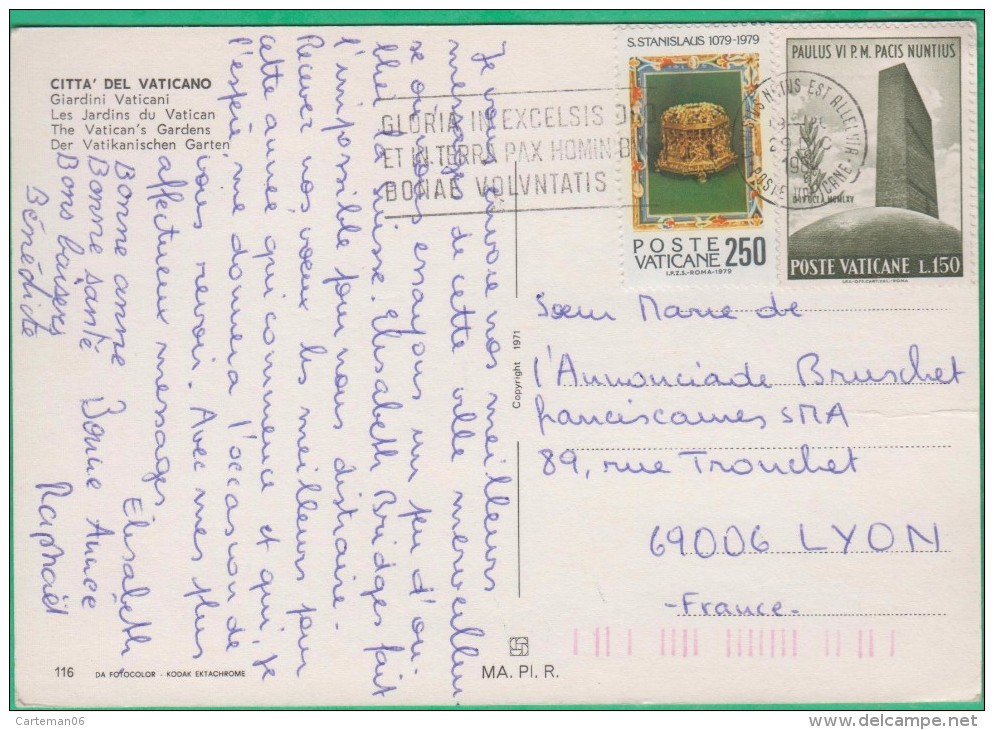 CITTA' DEL VATICANO
Giardini Vaticani
Les Jardins du Vatican
The Vatican's Gardens
Der Vatikanischen Garten
GLORIA IN EXCELSIS DEO
ET IN TERRA PAX HOMINIB
BONAE VOLVNTATIS
S.STANISLAUS 1079-1979
POSTE
VATICANE 250
I.P.Z.S.-ROMA-1979
PAULUS VI P.M. PACIS NUNTIUS
POSTE VATICANE L.150
NATUS EST ALLELVIA
POSTE VATICANE
Je vous envoie nos meilleurs
messages de cette ville merveilleuse
où nous essayons un peu d'ou-
blier Elisabeth Bridges fait
l'impossible pour nous distraire.
Recevez nos vœux les meilleurs pour
cette année qui commence et qui, je
l'espère, me donnera l'occasion de
vous revoir. Avec mes plus
affectueux messages,
Elisabeth
Bonne année Bonne Année
Bonne santé Raphaël
Bons baisers
Bénédicte
Sœur Marie de
l'Annonciade Bruschet
franciscaines SMA
89, rue Tronchet
69006 LYON
-France-
Copyright 1971
116
DA FOTOCOLOR - KODAK EKTACHROME
MA. PI. R.
Carteman06
www.delcampe.net